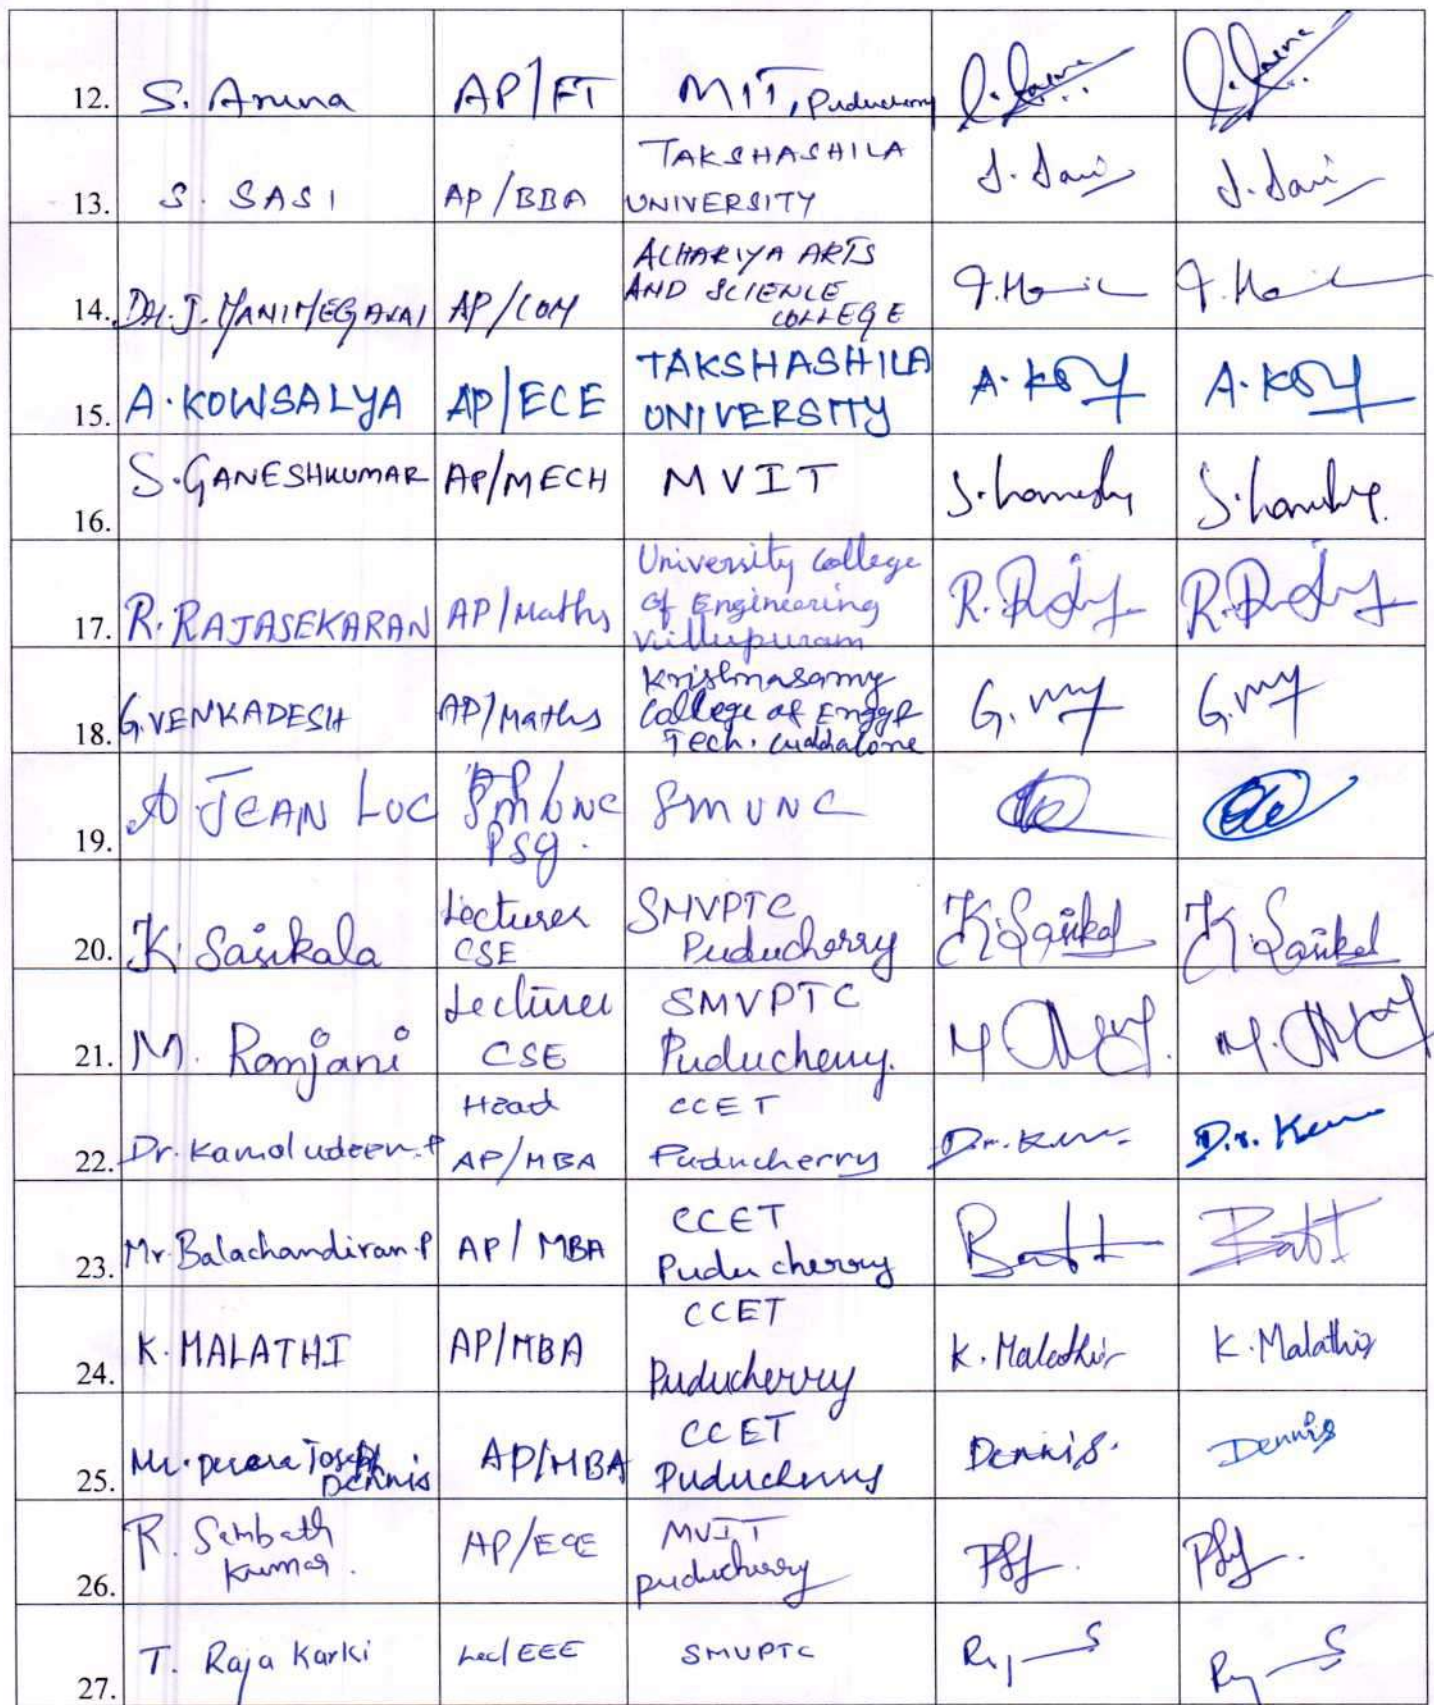 12. S. Aruna AP/FT MIT, Puducherry
13. S. SASI AP/BBA TAKSHASHILA
UNIVERSITY
14. J. MANIMEGALAI AP/COM ACHARIYA ARTS
AND SCIENCE
COLLEGE
15. A. KOWSALYA AP/ECE TAKSHASHILA
UNIVERSITY A.
16. S. GANESHKUMAR AP/MECH MVIT
17. R. RAJASEKARAN AP/Maths University College
of Engineering
Villupuram
18. G. VENKADESH AP/Maths Krishnasamy
College of Engg &
Tech. Cuddalore
19. A JEAN LUC AP/
SMVNC SMVNC
PSG.
20. K. Sasikala Lecturer
CSE SMVPTC
Puducherry K. Sasikal K. Sasikal
21. M. Ramjani Lecturer
CSE SMVPTC
Puducherry.
22. Dr. Kamaludeen. P Head
AP/MBA CCET
Puducherry
23. Mr. Balachandiran. P AP/MBA CCET
Puducherry
24. K. MALATHI AP/MBA CCET
Puducherry K. Malathi K. Malathi
25. Mr. Joseph
Dennis AP/MBA CCET
Puducherry Dennis. Dennis
26. R. Sembath
Kumar. AP/ECE MVIT
puducherry
27. T. Raja Karki Lec/EEE SMVPTC